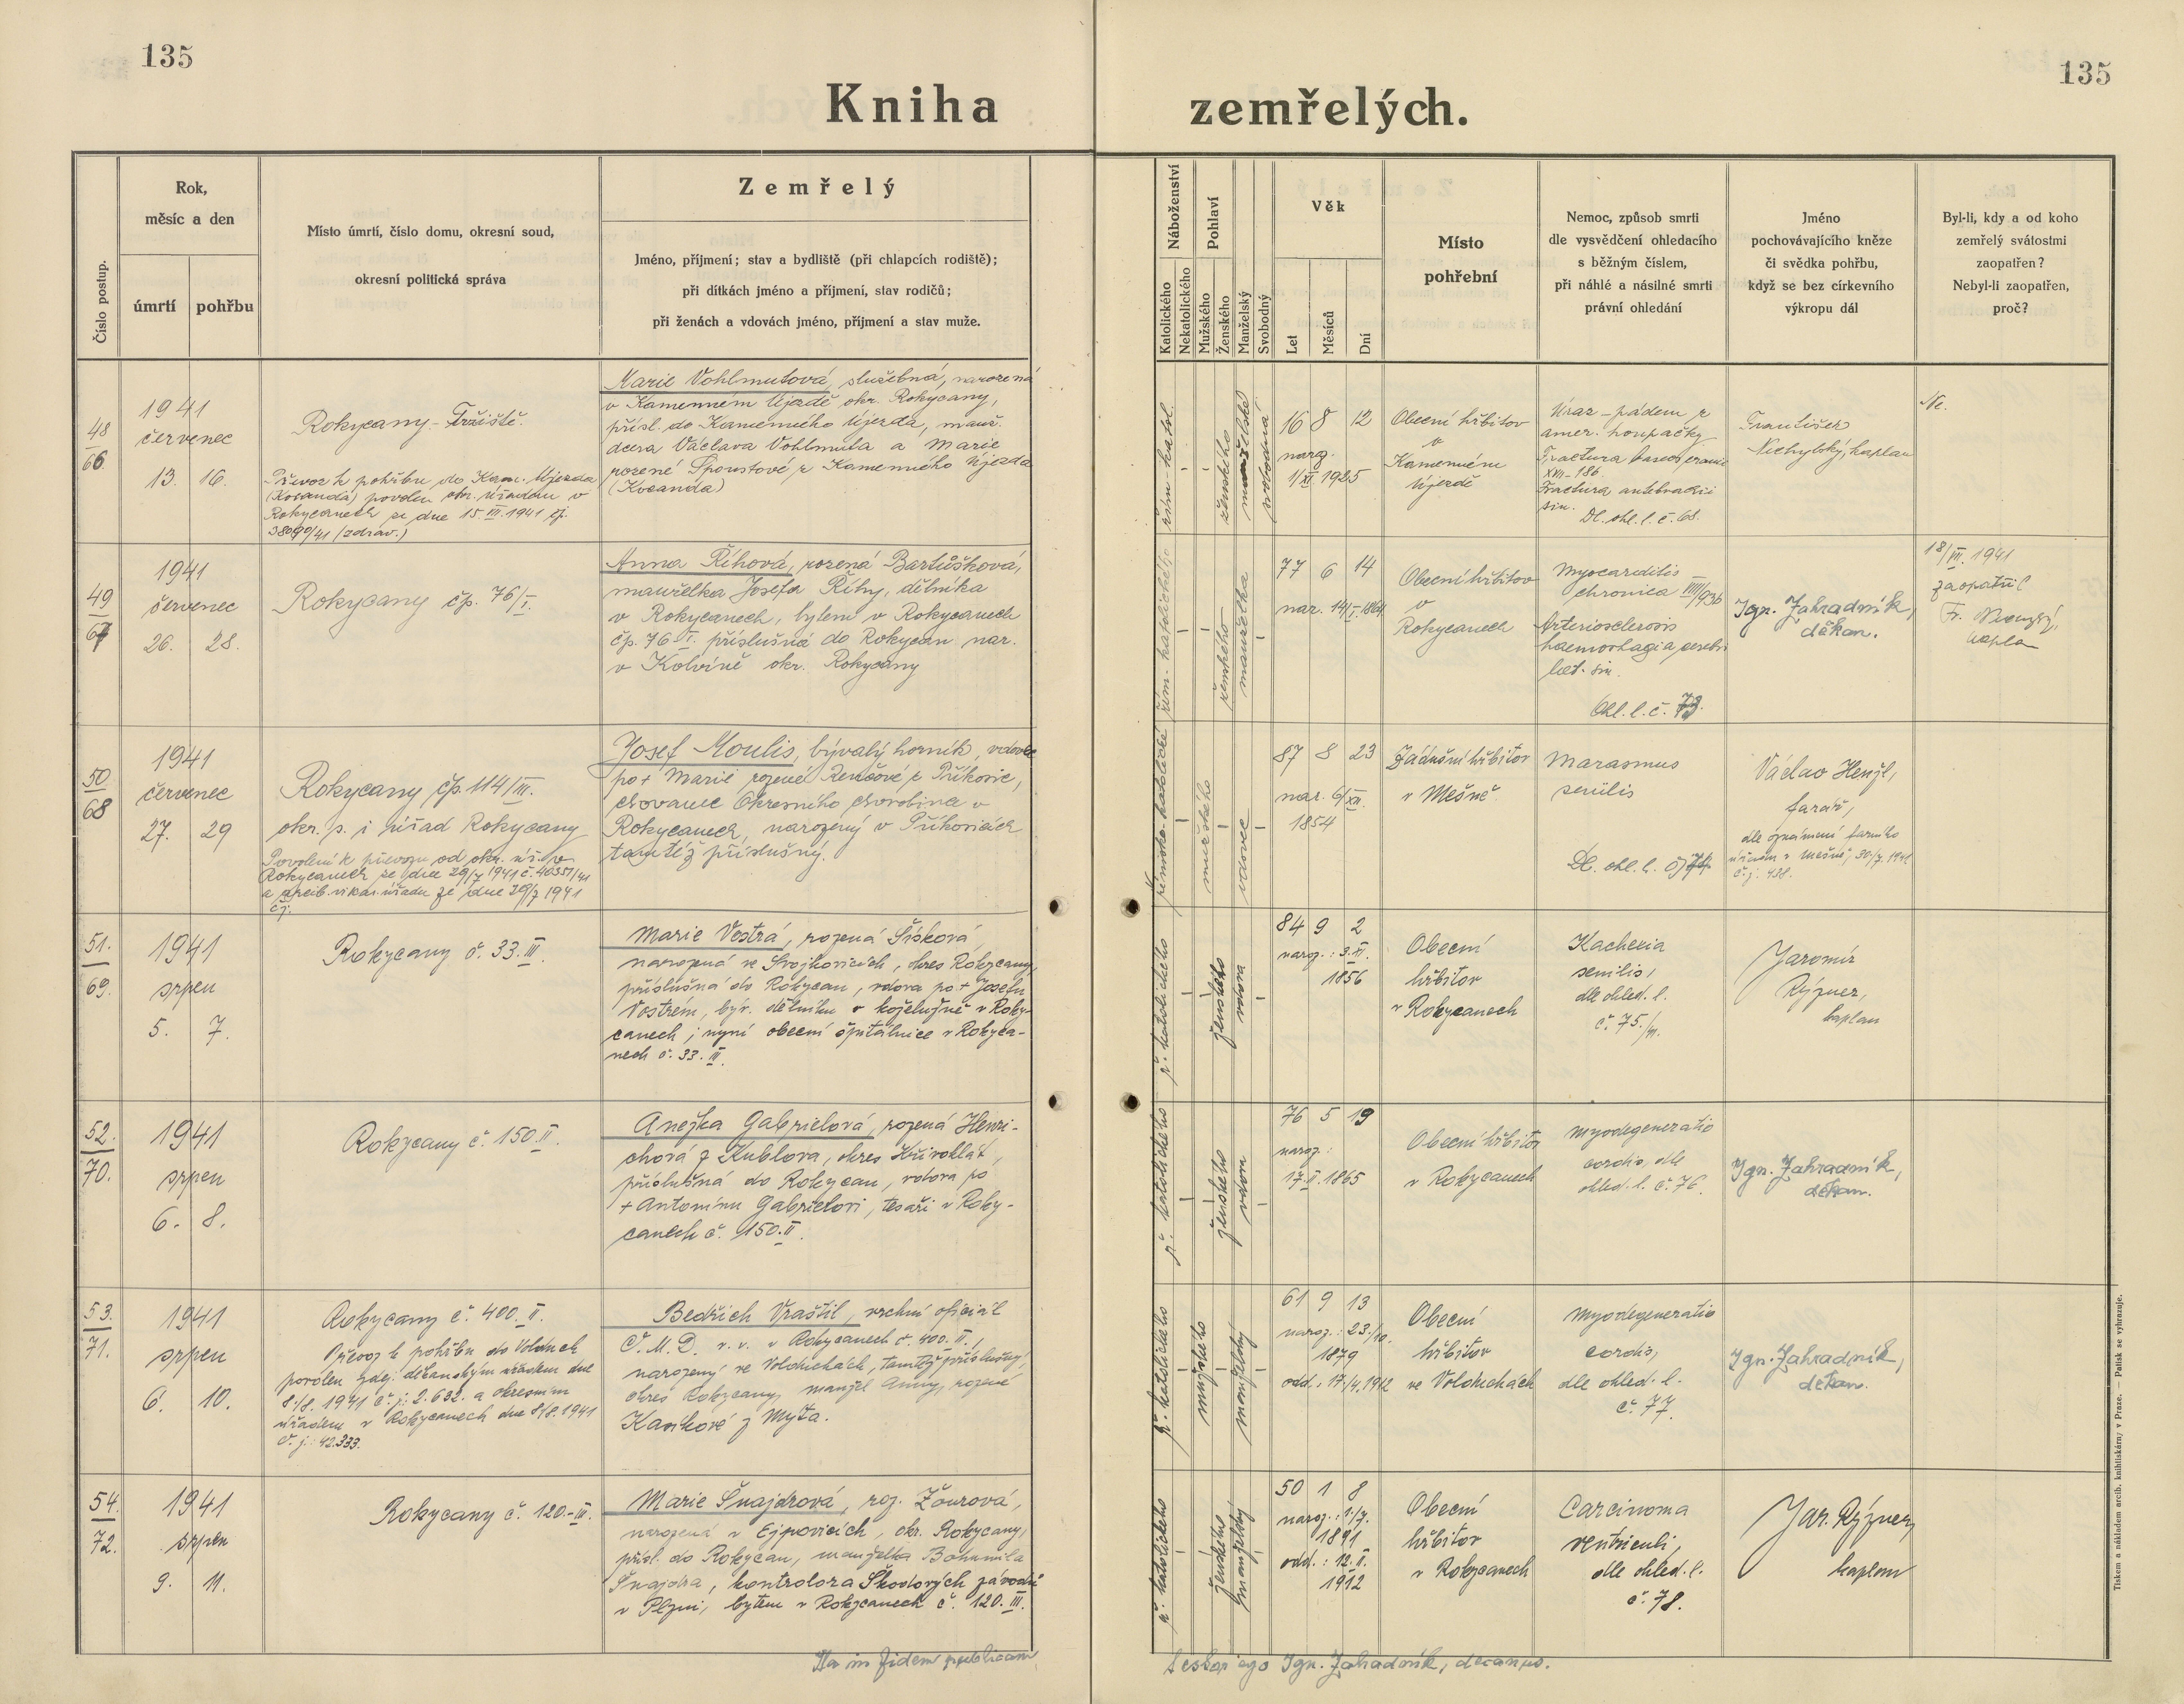 135
135
Kniha
zemřelých.
Číslo postup.
Rok,
měsíc a den
úmrtí
pohřbu
Místo úmrtí, číslo domu, okresní soud,
okresní politická správa
Zemřelý
Jméno, příjmení; stav a bydliště (při chlapcích rodiště);
při dítkách jméno a příjmení, stav rodičů;
při ženách a vdovách jméno, příjmení a stav muže.
Náboženství
Katolického
Nekatolického
Pohlaví
Mužského
Ženského
Manželský
Svobodný
Věk
Let
Měsíců
Dní
Místo
pohřební
Nemoc, způsob smrti
dle vysvědčení ohledacího
s běžným číslem,
při náhlé a násilné smrti
právní ohledání
Jméno
pochovávajícího kněze
či svědka pohřbu,
když se bez církevního
výkropu dál
Byl-li, kdy a od koho
zemřelý svátostmi
zaopatřen?
Nebyl-li zaopatřen,
proč?
48
66
1941
červenec
13. 16.
Rokycany - Tržiště.
Převoz k pohřbu do Kam. Újezda
(Kocanda) povolen okr. úřadem v
Rokycanech ze dne 15.III.1941 čj.
38090/41 (zdrav.)
Marie Vohlmutová, služebná, narozená
v Kamenném Újezdě okr. Rokycany,
přísl. do Kamenného Újezda, manž.
dcera Václava Vohlmuta a Marie
rozené Spoustové z Kamenného Újezda
(Kocanda)
řím-katol.
ženského
svobodná
16 8 12
narz.
1/XI 1925
Obecní hřbitov
v
Kamenném
Újezdě
Úraz - pádem z
amer. houpačky
Fractura baseos cranii
XVII-186
Fractura antebrachii
sin.
Dl. ohl. l. č. 68.
František
Nechylský, kaplan
Ne.
49
67
1941
červenec
26. 28.
Rokycany čp. 76/I.
Anna Říhová, rozená Bartůšková,
manželka Josefa Říhy, dělníka
v Rokycanech, bytem v Rokycanech
čp. 76 I. příslušná do Rokycan nar.
v Kolvíně okr. Rokycany
řím. katolického
ženského
manželka
77 6 14
nar. 14/I. 1864
Obecní hřbitov
v
Rokycanech
Myocarditis
chronica
Arteriosclerosis
haemorhagia cerebri
lat. sin.
Ohl. l. č. 73.
Ign. Zahradník,
děkan.
1941
zaopatřil
Fr.
50
68
1941
červenec
27. 29
Rokycany čp. 114/III.
okr. s. i úřad Rokycany
Povolení k převozu od okr. úř. v
Rokycanech ze dne 29/7 1941 č. 40351/41
a arcib. vikar. úřadu ze dne 29/7 1941
čj.
Josef Moulis, bývalý horník, vdovec
po + Marii rozené Renčové z Příkosic,
chovanec Okresního chorobince v
Rokycanech, narozený v Příkosicích
tamtéž příslušný.
římsko-katolické
mužského
vdovec
87 8 23
nar. 6/XII.
1854
Zádušní hřbitov
v Mešně
Marasmus
senilis
Dl. ohl. l. č. 74
Václav Henzl,
farář,
dle oznámení farního
úřadu v Mešně, 30/7. 1941
č.j. 488.
51.
69.
1941
srpen
5. 7.
Rokycany č. 33.III.
Marie Vostrá, rozená Šísková,
narozená ve Svojkovicích, okres Rokycany,
příslušná do Rokycan, vdova po + Josefu
Vostrém, býv. dělníku v koželužně v Roky-
canech; nyní obecní špitálnice v Rokyca-
nech č. 33. III.
ř. katolického
ženského
vdova
84 9 2
naroz.: 3.XI.
1856
Obecní
hřbitov
v Rokycanech
Kachexia
senilis,
dle ohled. l.
č. 75./41.
Jaromír
Rýzner,
kaplan
52.
70.
1941
srpen
6. 8.
Rokycany č. 150.II.
Anežka Gabrielová, rozená Henri-
chová z Kublova, okres Křivoklát,
příslušná do Rokycan, vdova po
+ Antonínu Gabrielovi, tesaři v Roky-
canech č. 150.II.
ř. katolického
ženského
vdova
76 5 19
naroz.:
17.II.1865
Obecní hřbitov
v Rokycanech
Myodegeneratio
cordis, dle
ohled. l. č. 76.
Ign. Zahradník,
děkan.
53.
71.
1941
srpen
6. 10.
Rokycany č. 400.II.
Převoz k pohřbu do Volduch
povolen zdej. děkanským úřadem dne
8./8. 1941 č. j.: 2.632. a okresním
úřadem v Rokycanech dne 8/8. 1941
č. j.: 42.333.
Bedřich Vraštil, vrchní oficiál
Č. M. D. v. v. v Rokycanech č. 400. II.,
narozený ve Volduchách, tamtéž příslušný,
okres Rokycany, manžel Anny, rozené
Kasíkové z Mýta.
ř. katolického
mužského
manželský
61 9 13
naroz.: 23./10.
1879
odd.: 17/4. 1912
Obecní
hřbitov
ve Volduchách
Myodegeneratio
cordis,
dle ohled. l.
č. 77.
Ign. Zahradník,
děkan.
54.
72.
1941
srpen
9. 11.
Rokycany č. 120.-III.
Marie Šnajdrová, roz. Žourová,
narozená v Ejpovicích, okr. Rokycany,
přísl. do Rokycan, manželka Bohumila
Šnajdra, kontrolora Škodových závodů
v Plzni, bytem v Rokycanech č. 120. III.
ř. katolického
ženského
manželský
50 1 8
naroz.: 1./7.
1891
odd.: 12.II.
1912
Obecní
hřbitov
v Rokycanech
Carcinoma
ventriculi,
dle ohled. l.
č. 78.
Jar. Rýzner,
kaplan
Ita in fidem publicam
testor ego Ign. Zahradník, decanus.
Tiskem a nákladem arcib. knihtiskárny v Praze. — Patisk se vyhrazuje.